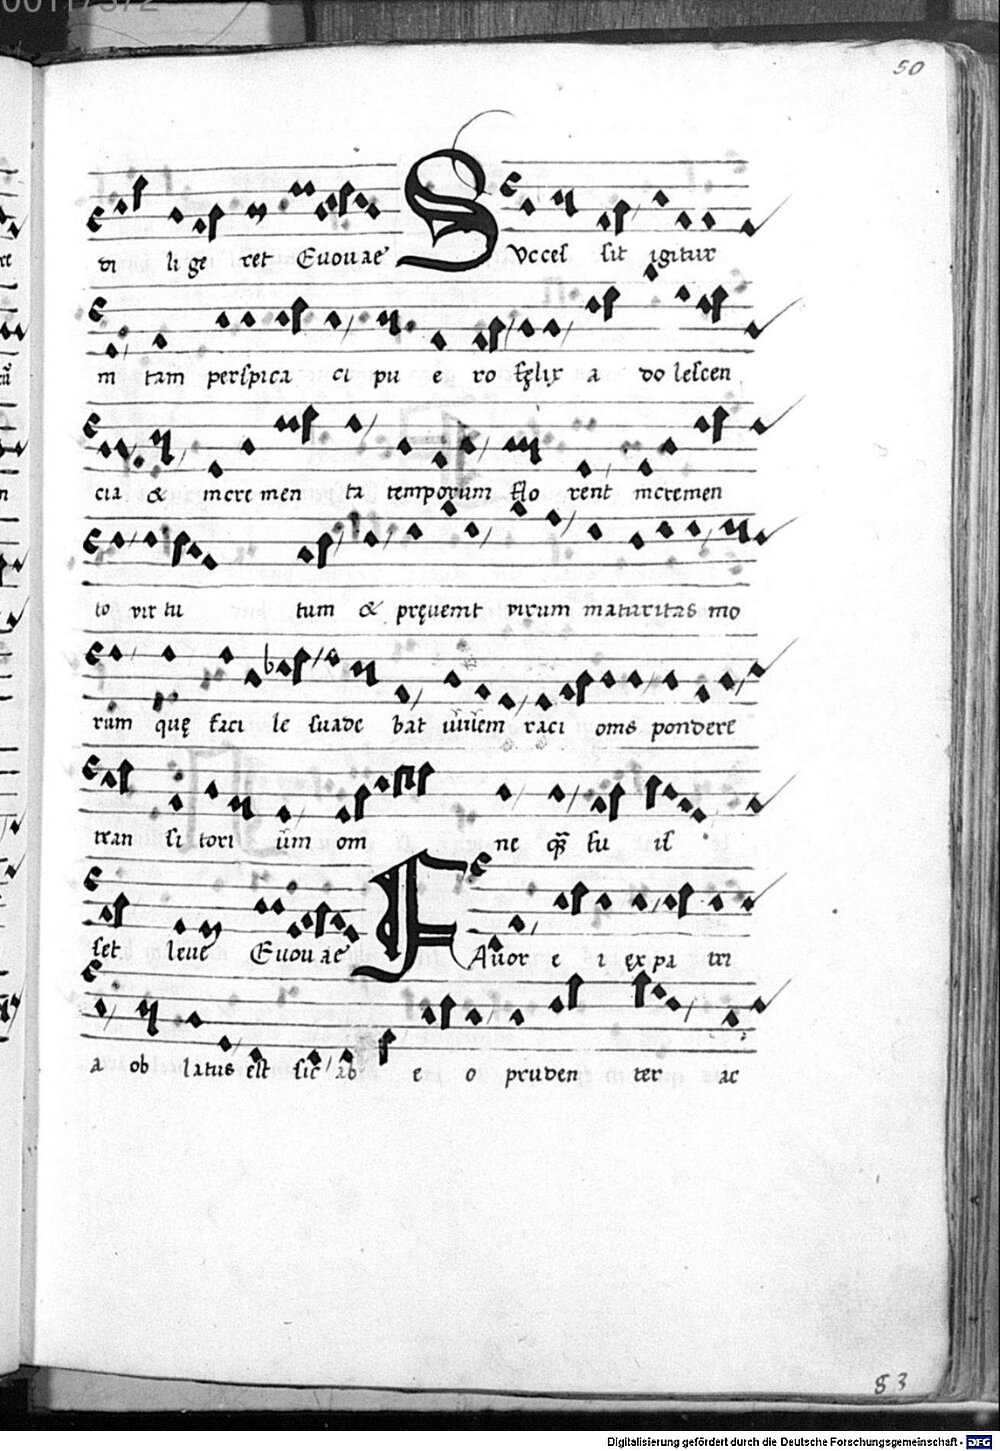 50
di li ge ret Euouae Succes sit igitur
in tam perspica ci pu e ro fęlix a do lescen
cia & incre men ta temporum flo rent incremen
to vir tu tum & pręuenit virum maturitas mo
rum quę faci le suade bat iuuenem raci onis pondere
tran si tori um om ne qȝ fu is
set leue Euouae Fauor e i ex pa tri
a ob latus est sic ab e o pruden ter ac
83
Digitalisierung gefördert durch die Deutsche Forschungsgemeinschaft - DFG